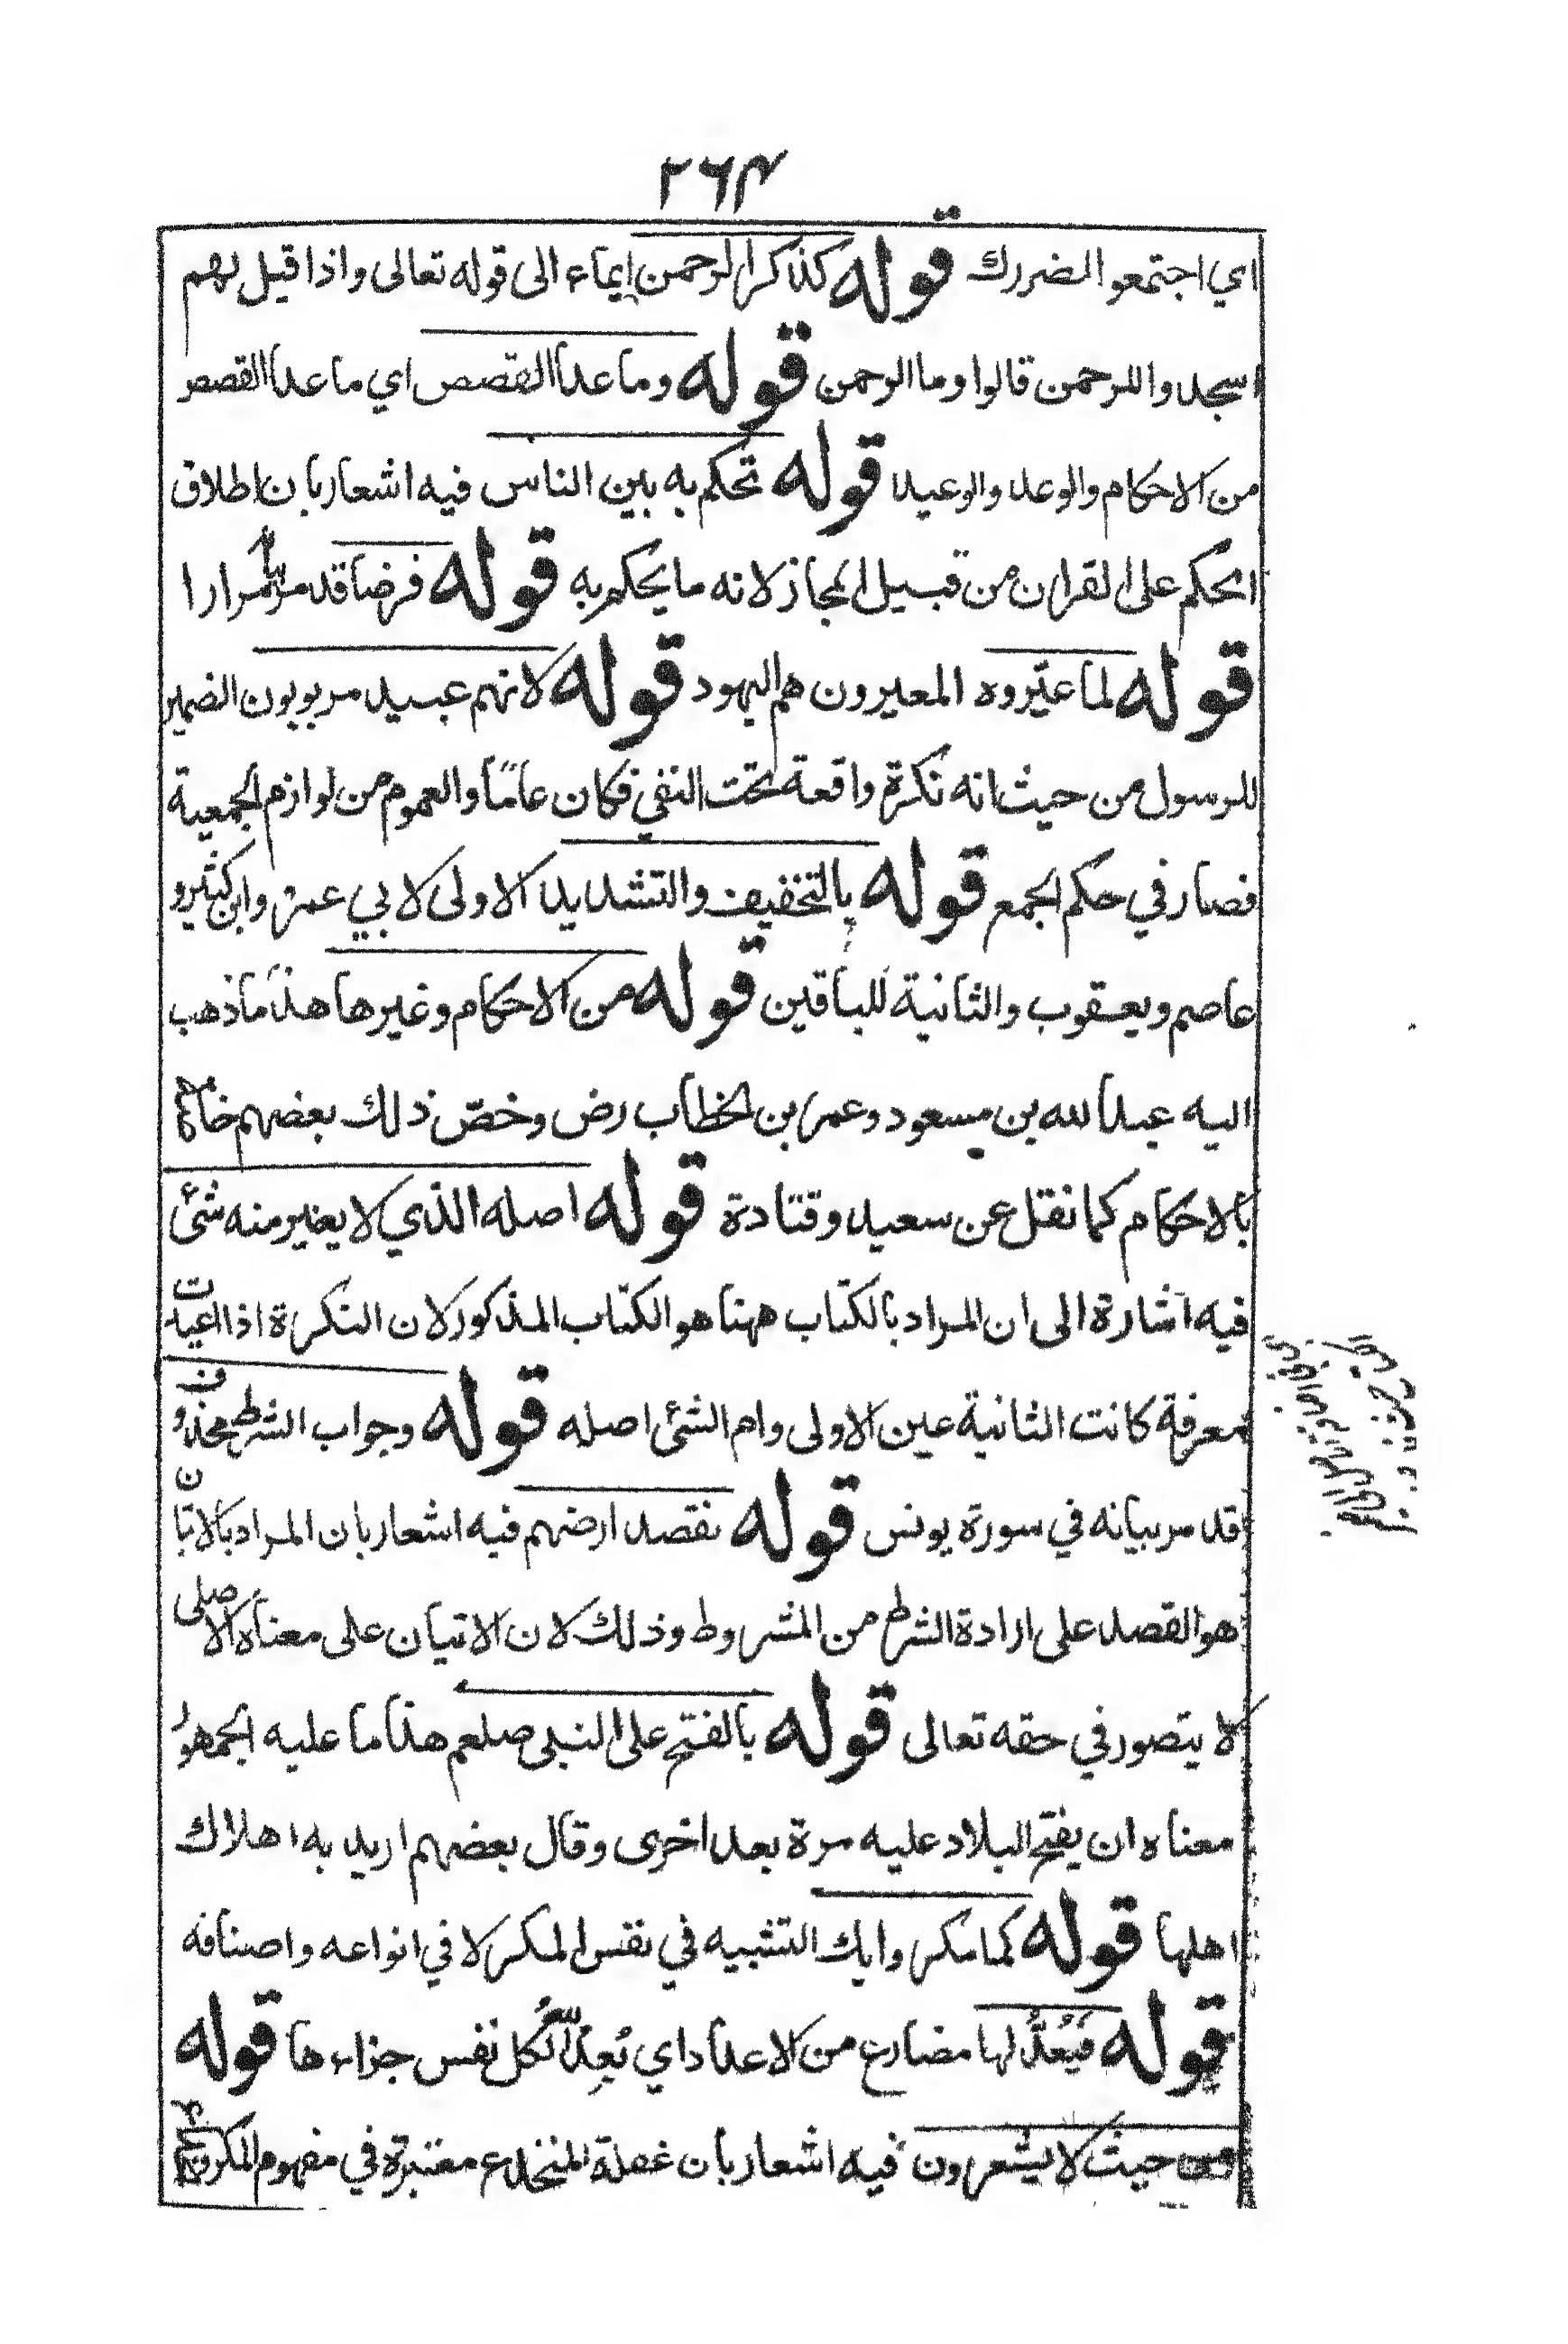 ٢٦٤
اي اجتمعو الضررك قوله كذكر الرحمن ايماء الى قوله تعالى واذا قيل لهم
اسجدوا للرحمن قالوا وما الرحمن قوله وما عدا القصص اي ما عدا القصص
من الاحكام والوعد والوعيد قوله تحكم به بين الناس فيه اشعار بان اطلاق
الحكم على القران من قبيل المجاز لانه ما يحكم به قوله فرضا قد مر مرارا
قوله لما عيّروه المعيرون هم اليهود قوله لانهم عبيد مربوبون الضمير
للرسول من حيث انه نكرة واقعة تحت النفي فكان عامّا والعموم من لوازم الجمعية
فصار في حكم الجمع قوله بالتخفيف والتشديد الاولى لابي عمرو وابن كثير و
عاصم ويعقوب والثانية للباقين قوله من الاحكام وغيرها هذا ما ذهب
اليه عبد الله بن مسعود وعمر بن الخطاب رض وخصّ ذلك بعضهم
بالاحكام كما نقل عن سعيد وقتادة قوله اصله الذي لا يغير منه شئ
فيه اشارة الى ان المراد بالكتاب ههنا هو الكتاب المذكور لان النكرة اذا اعيدت
معرفة كانت الثانية عين الاولى وام الشئ اصله قوله وجواب الشرط محذوف
قد مر بيانه في سورة يونس قوله نقصد ارضهم فيه اشعار بان المراد بالاتيان
هو القصد على ارادة الشرط من المشروط وذلك لان الاتيان على معناه الاصلي
لا يتصور في حقه تعالى قوله بالفتح على النبي صلعم هذا ما عليه الجمهور
معناه ان يفتح البلاد عليه مرة بعد اخرى وقال بعضهم اريد به اهلاك
اهلها قوله كما مكروا بك التشبيه في نفس المكر لا في انواعه واصنافه
قوله فيُعدُّ لها مضارع من الاعداد اي يُعِدّ لكل نفس جزاءها قوله
من حيث لا يشعرون فيه اشعار بان غفلة المنخدع معتبرة في مفهوم المكر